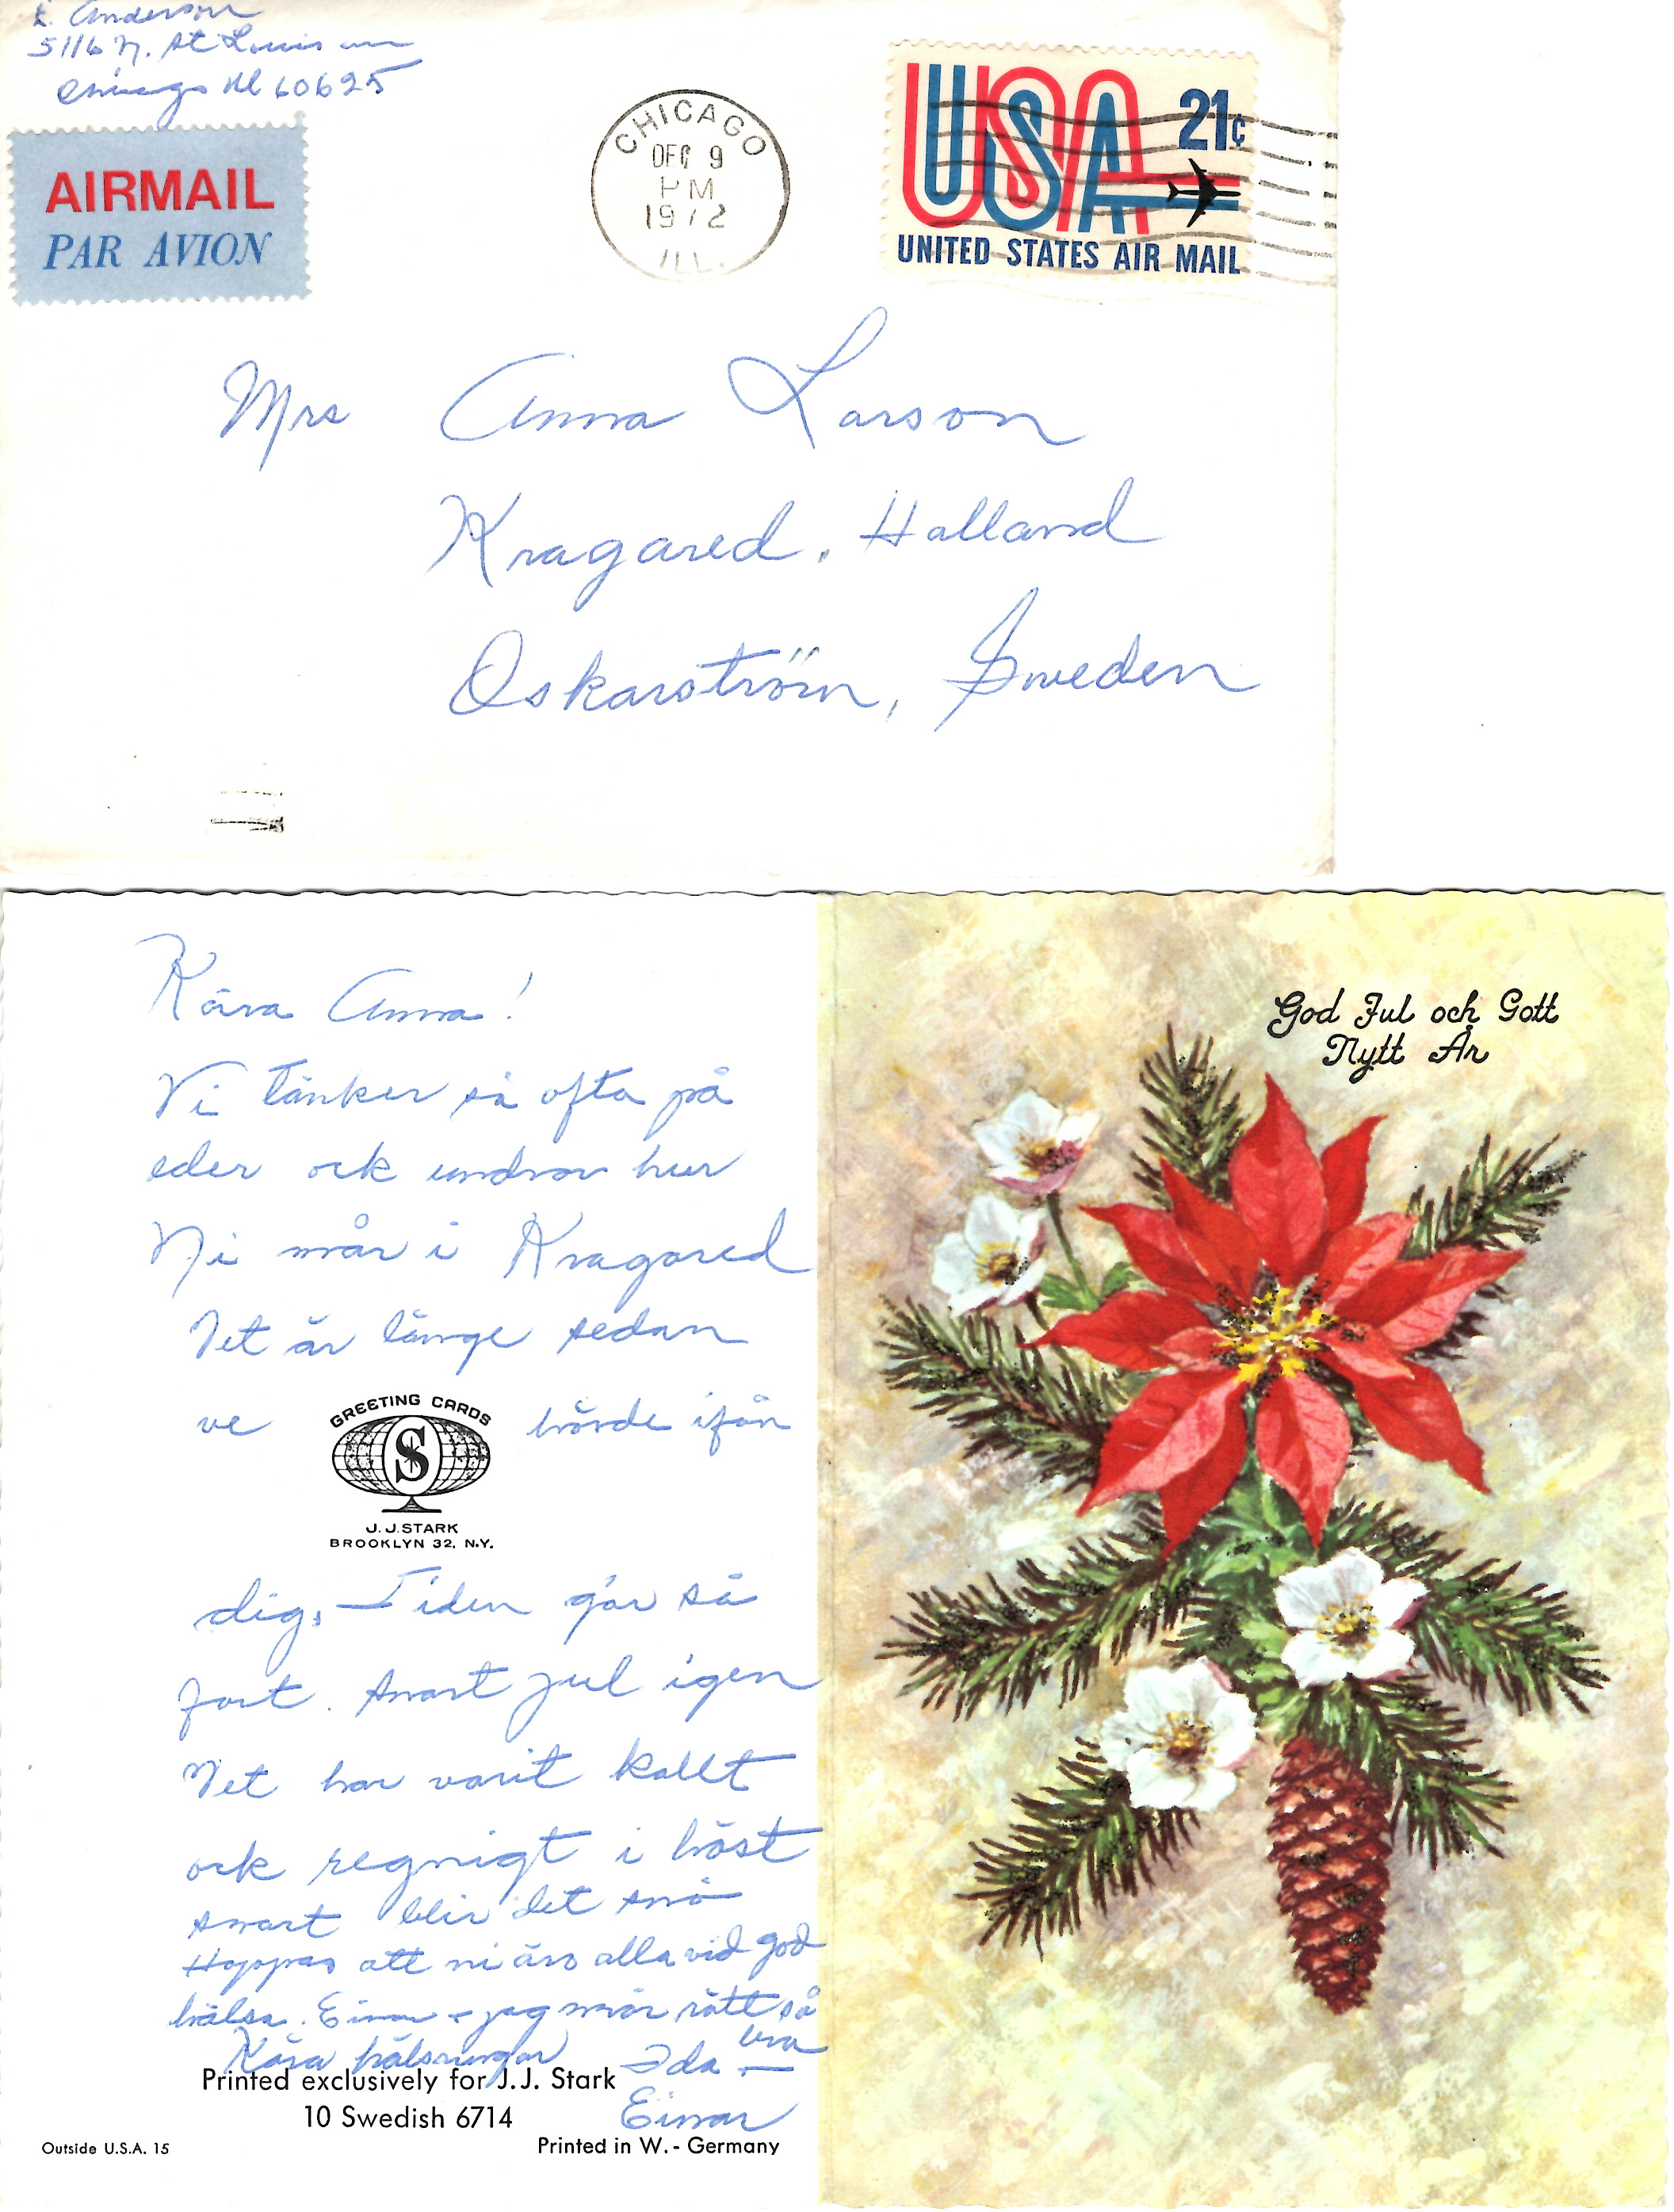 E. Anderson
5116 N. St Louis ave
Chicago Ill 60625
AIRMAIL
PAR AVION
CHICAGO
DEC 9
PM
1972
ILL.
USA 21c
UNITED STATES AIR MAIL
Mrs Anna Larson
Kragared, Halland
Oskarström, Sweden
Kära Anna!
Vi tänker så ofta på
eder ock undrar hur
Ni mår i Kragared
Det är länge sedan
ve hörde ifån
GREETING CARDS
S
J. J. STARK
BROOKLYN 32, N.Y.
dig, Tiden går så
fort. snart jul igen
Det har varit kallt
ock regnigt i höst
snart blir det snö
Hoppas att ni äro alla vid god
hälsa. Einar + jag mår rätt så
bra
Kära hälsningar Ida +
Einar
Printed exclusively for J.J. Stark
10 Swedish 6714
Outside U.S.A. 15
Printed in W.- Germany
God Jul och Gott
Nytt År